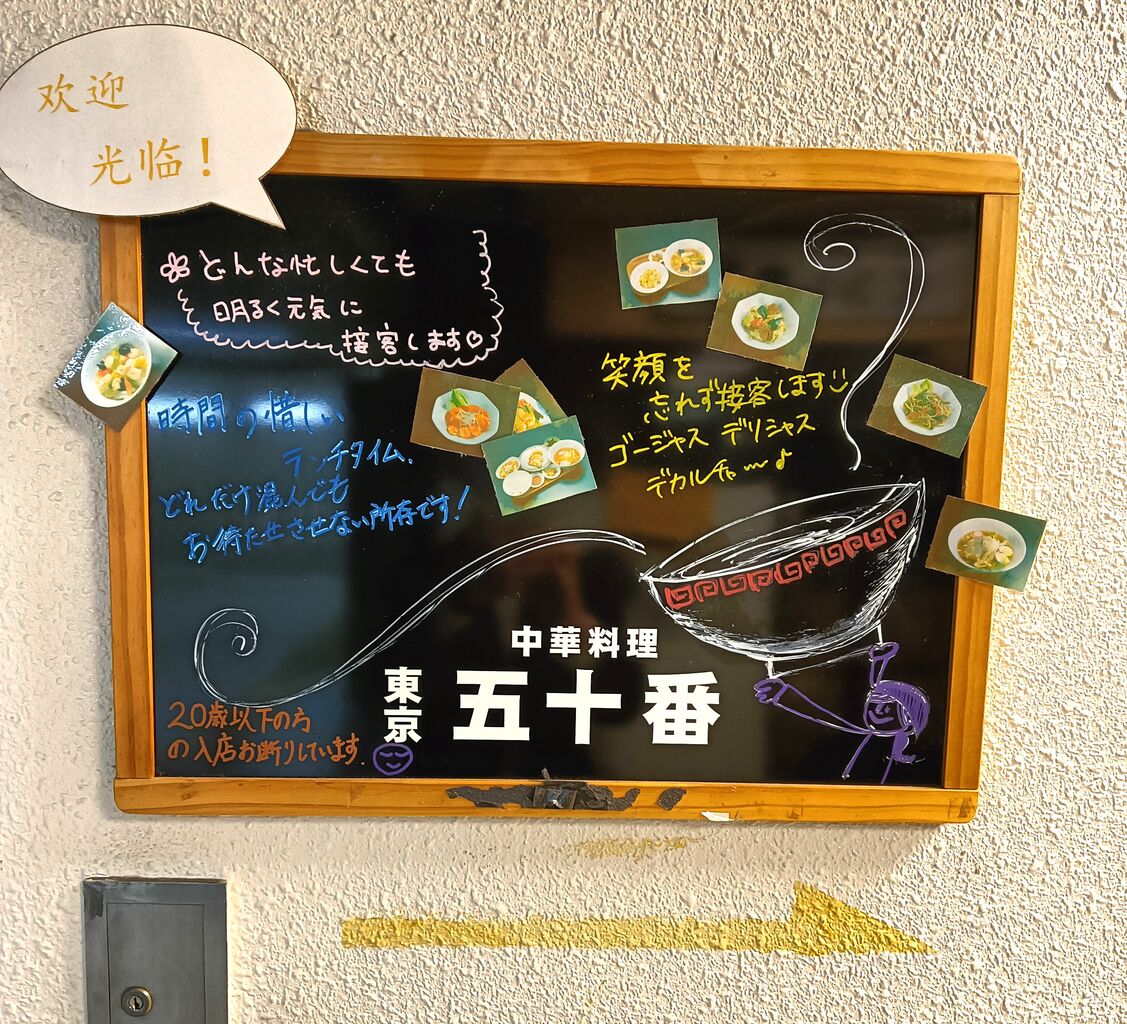 欢迎
光临!
どんな忙しくても
明るく元気に
接客します♡
時間の惜しい
ランチタイム、
どれだけ混んでも
お待たせさせない所存です!
笑顔を
忘れず接客します☺
ゴージャス デリシャス
デカルチャ〜♪
中華料理
東京
五十番
20歳以下の方
の入店お断りしています.